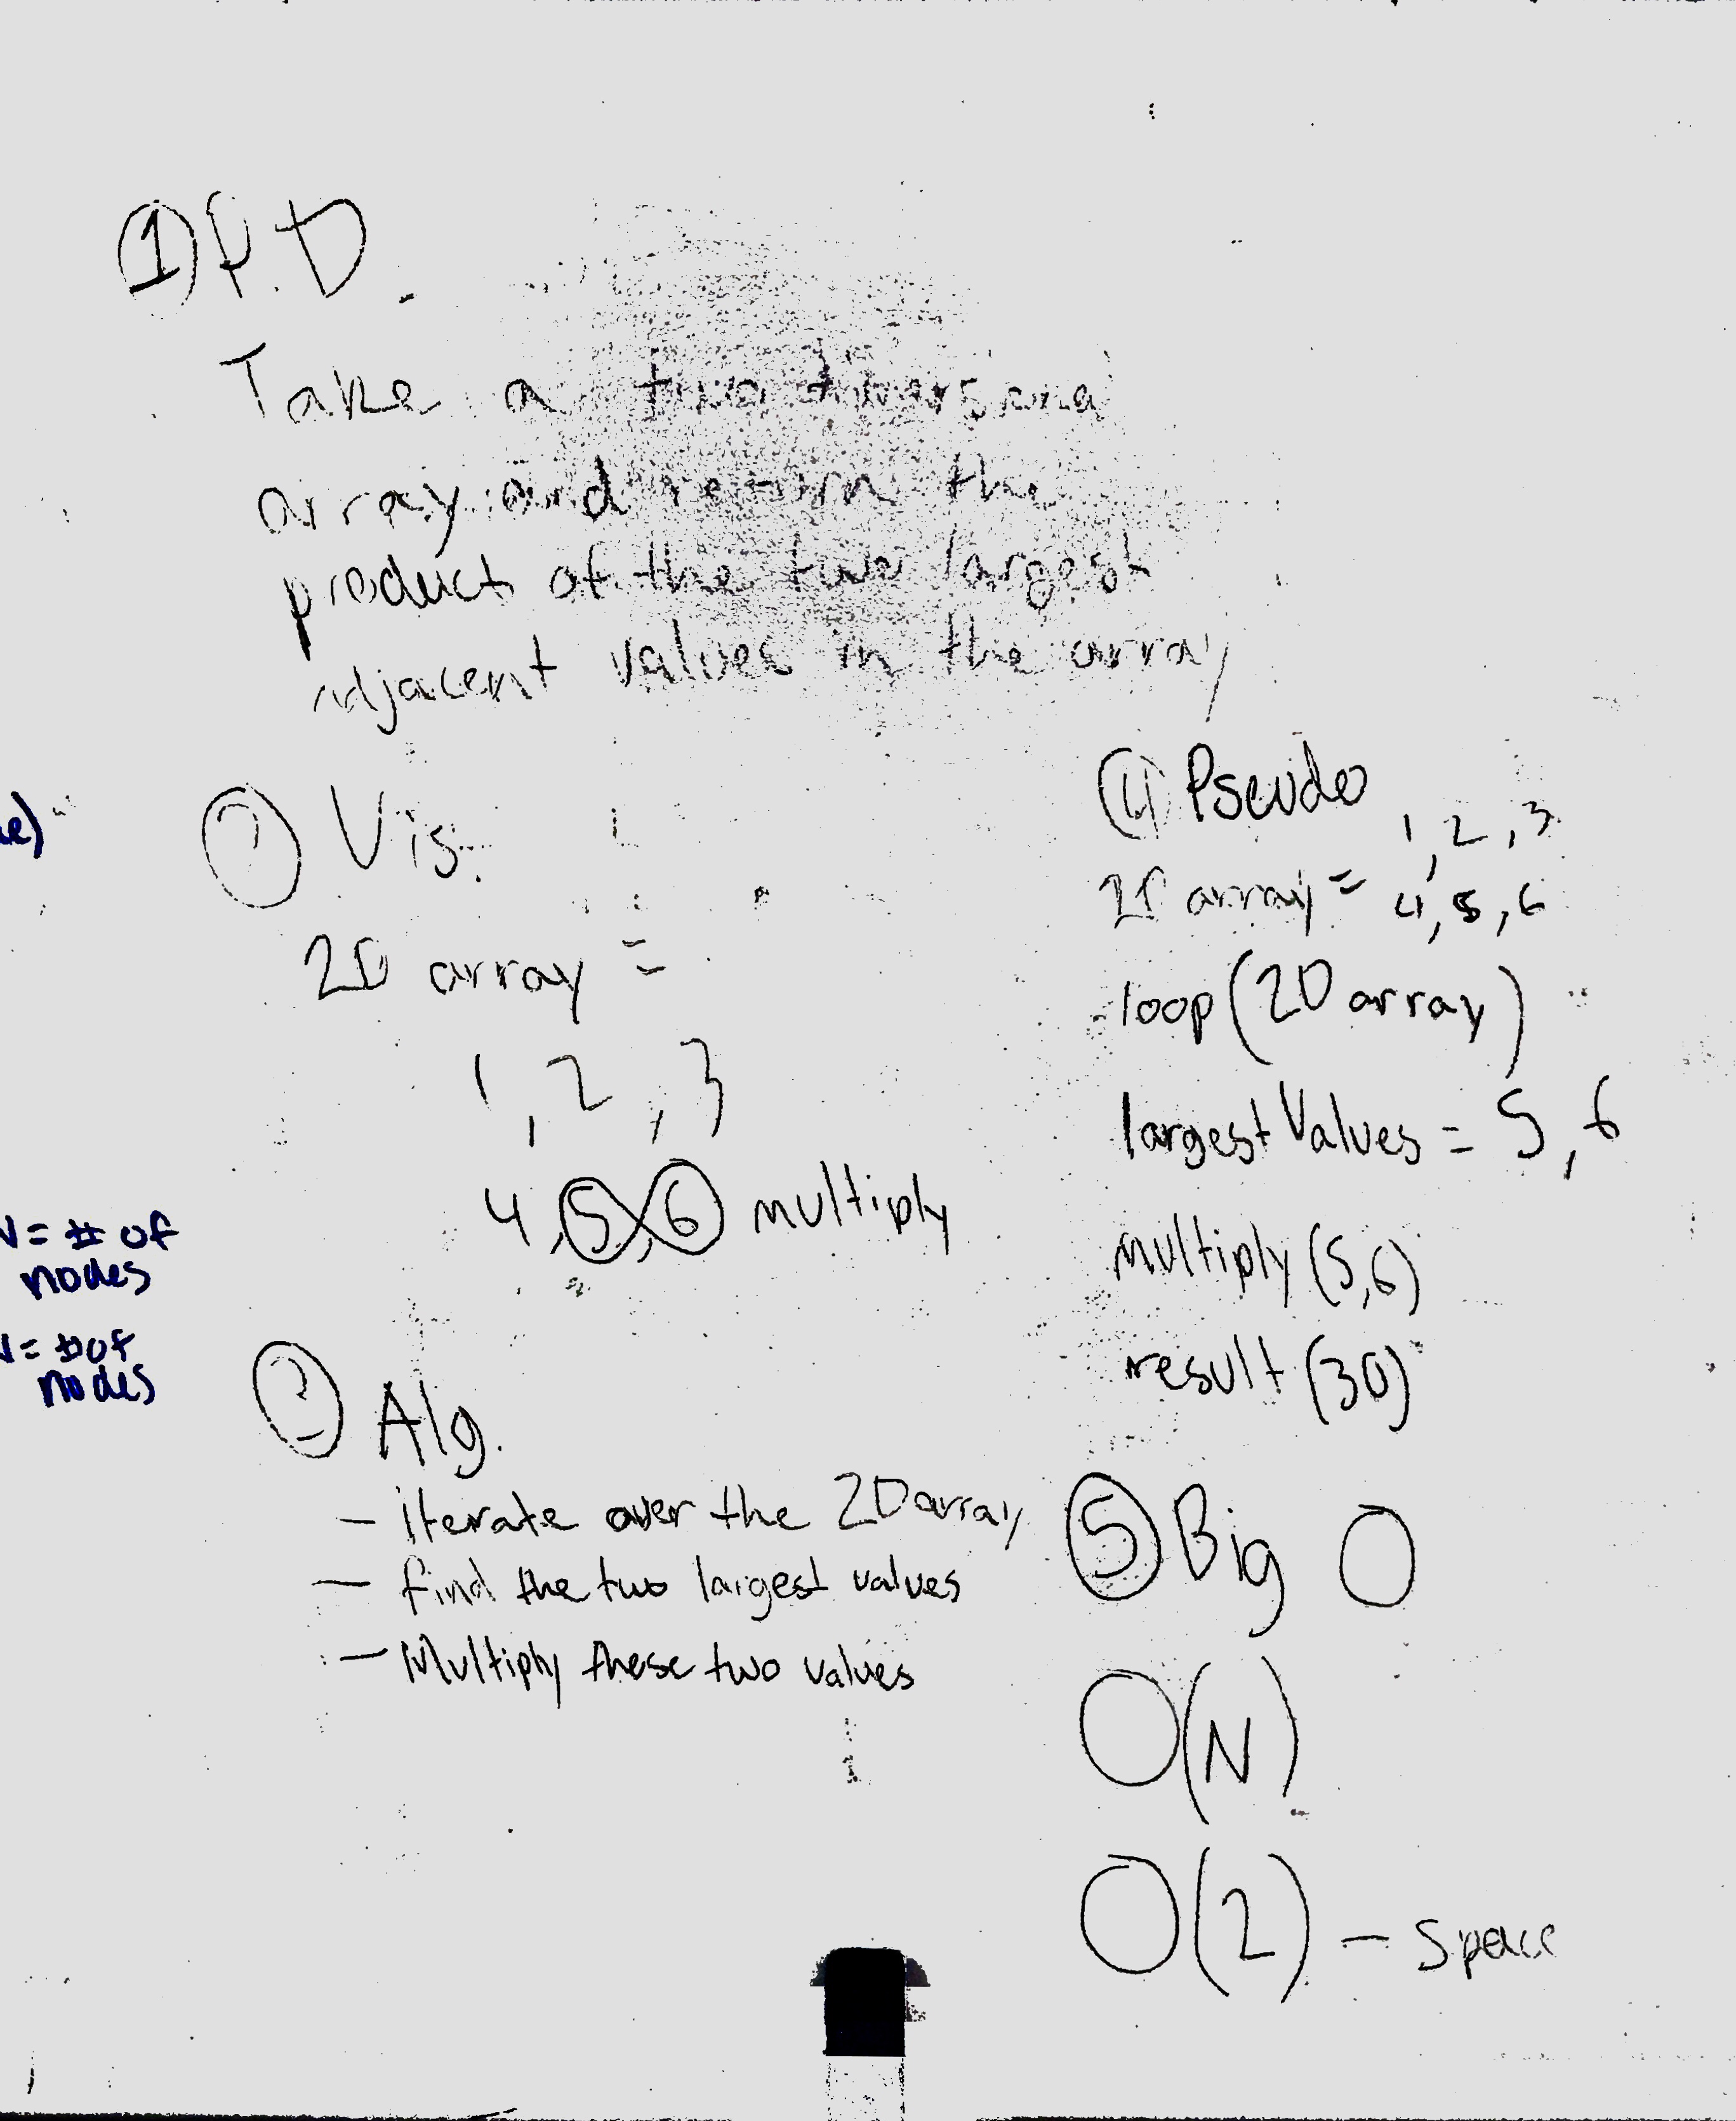 ① P.D.
Take a two dimensional
array and return the
product of the two largest
adjacent values in the array
② Vis.
2D array =
1, 2, 3
4, 5, 6 multiply
③ Alg.
- iterate over the 2D array
- find the two largest values
- Multiply these two values
④ Pseudo
1, 2, 3
2D array = 4, 5, 6
loop (2D array)
largest Values = 5, 6
multiply (5,6)
result (30)
⑤ Big O
O(N)
O(2) - Space
N = # of
nodes
N = # of
nodes